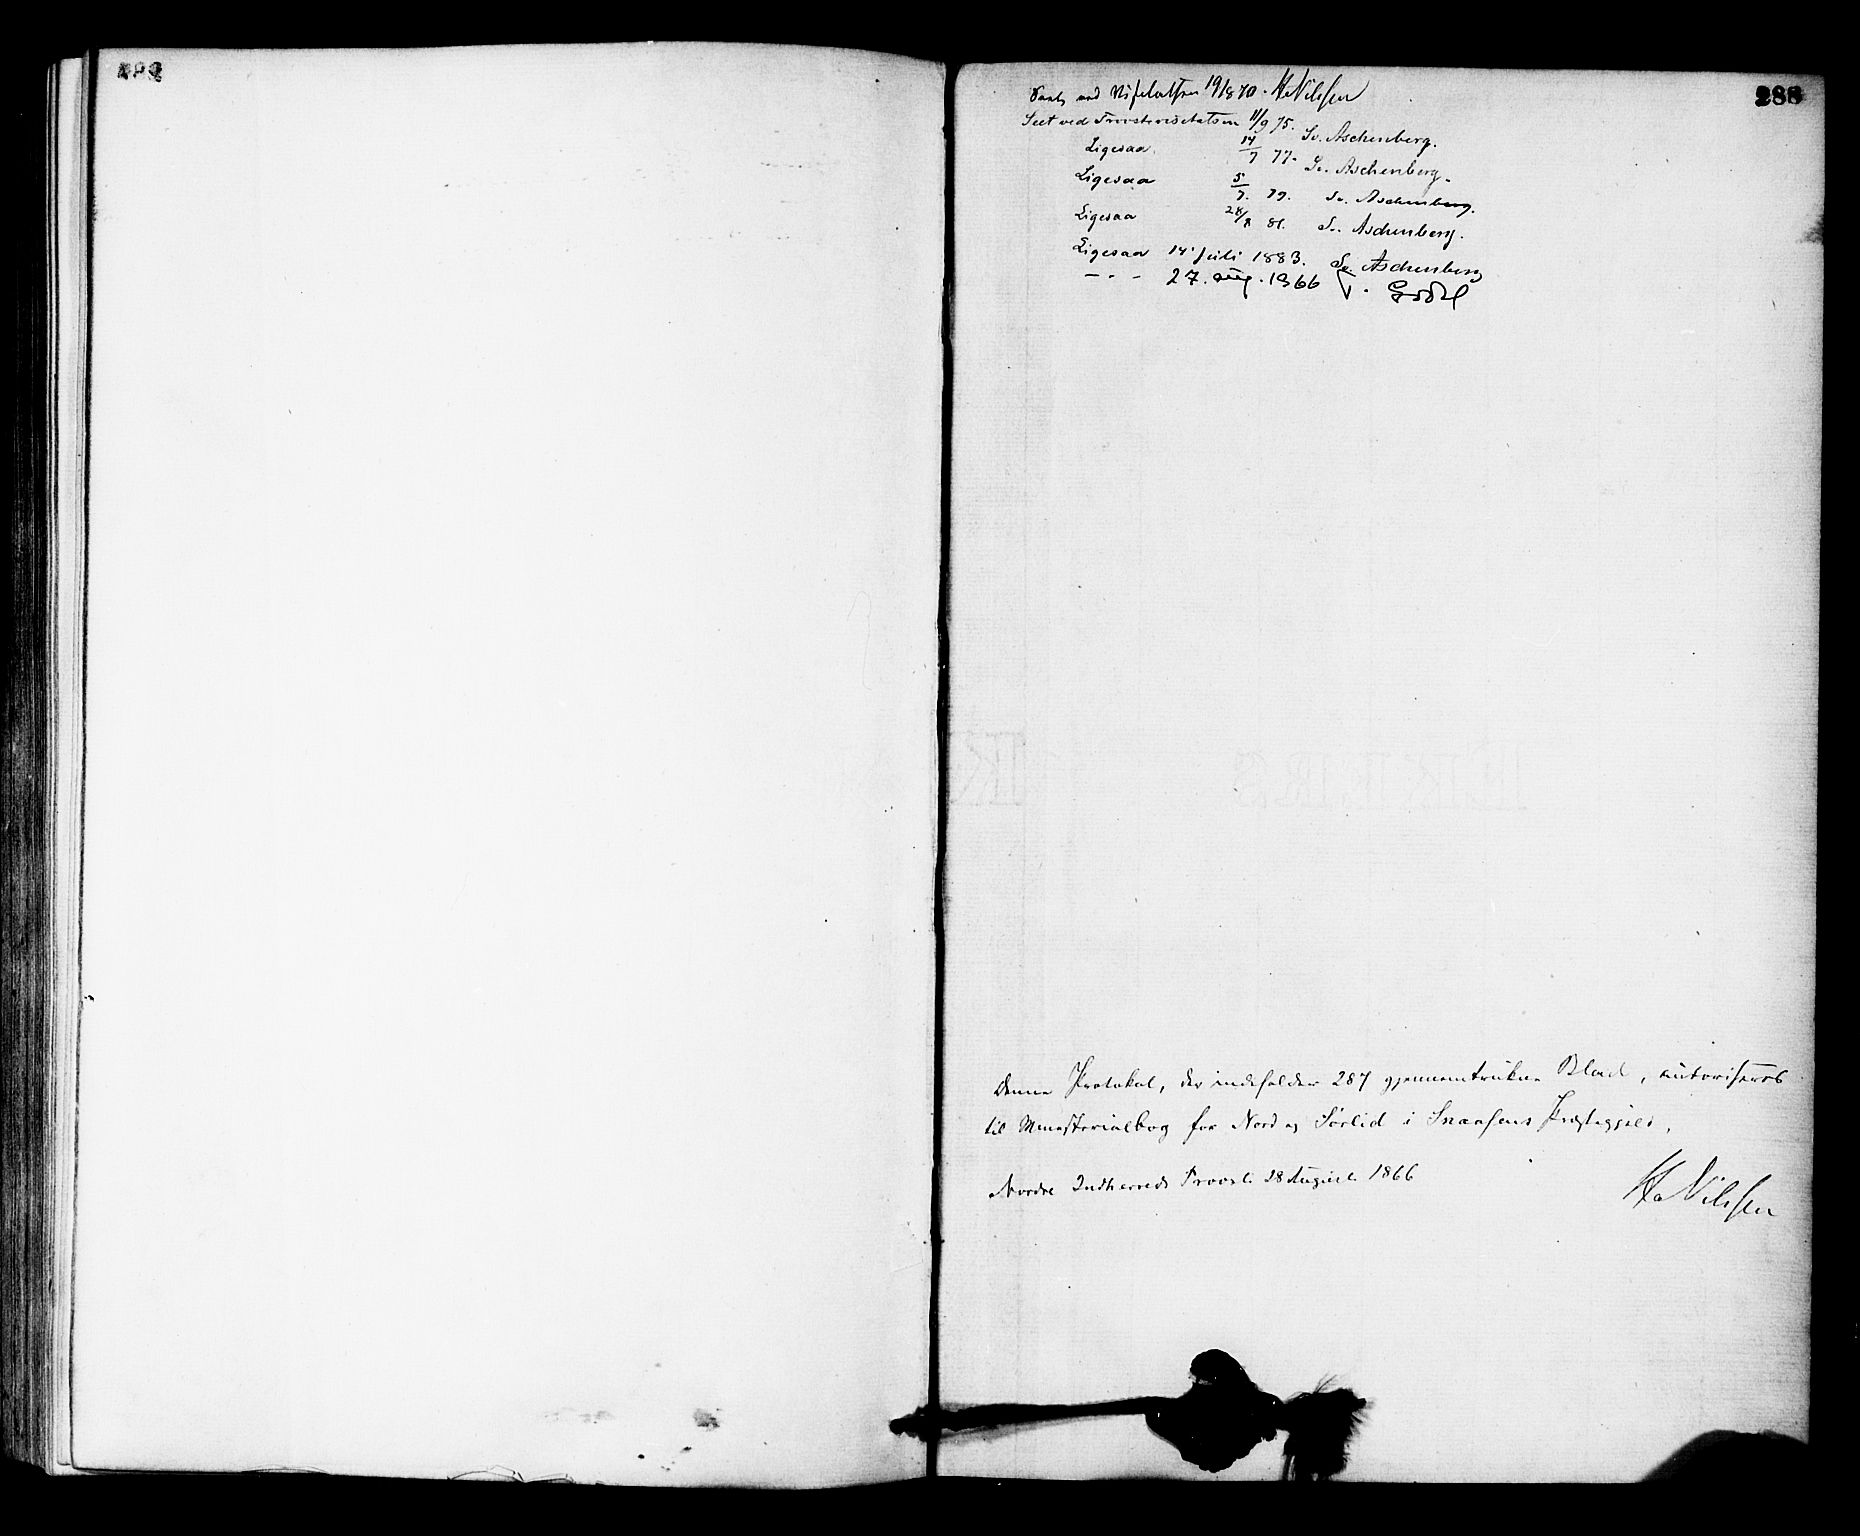 288
ved Visitatsen 19/8 70. Nilssen
Seet ved Provstevisitatsen 11/9 75. Sv. Aschenberg.
Ligesaa 14/7 77. Sv. Aschenberg.
Ligesaa 5/7. 79. Sv. Aschenberg.
Ligesaa 24/8 81. Sv. Aschenberg.
Ligesaa 14 juli 1883. Sv. Aschenberg
— · - 27. aug. 1966
Denne Protokol, der indeholder 287 gjennemtrukne Blad, autoriseres
til Ministerialbog for Nord og Sørlid i Snaasens Præstegjeld.
Nordre Indherreds Provsti 28 August 1866
Nilssen